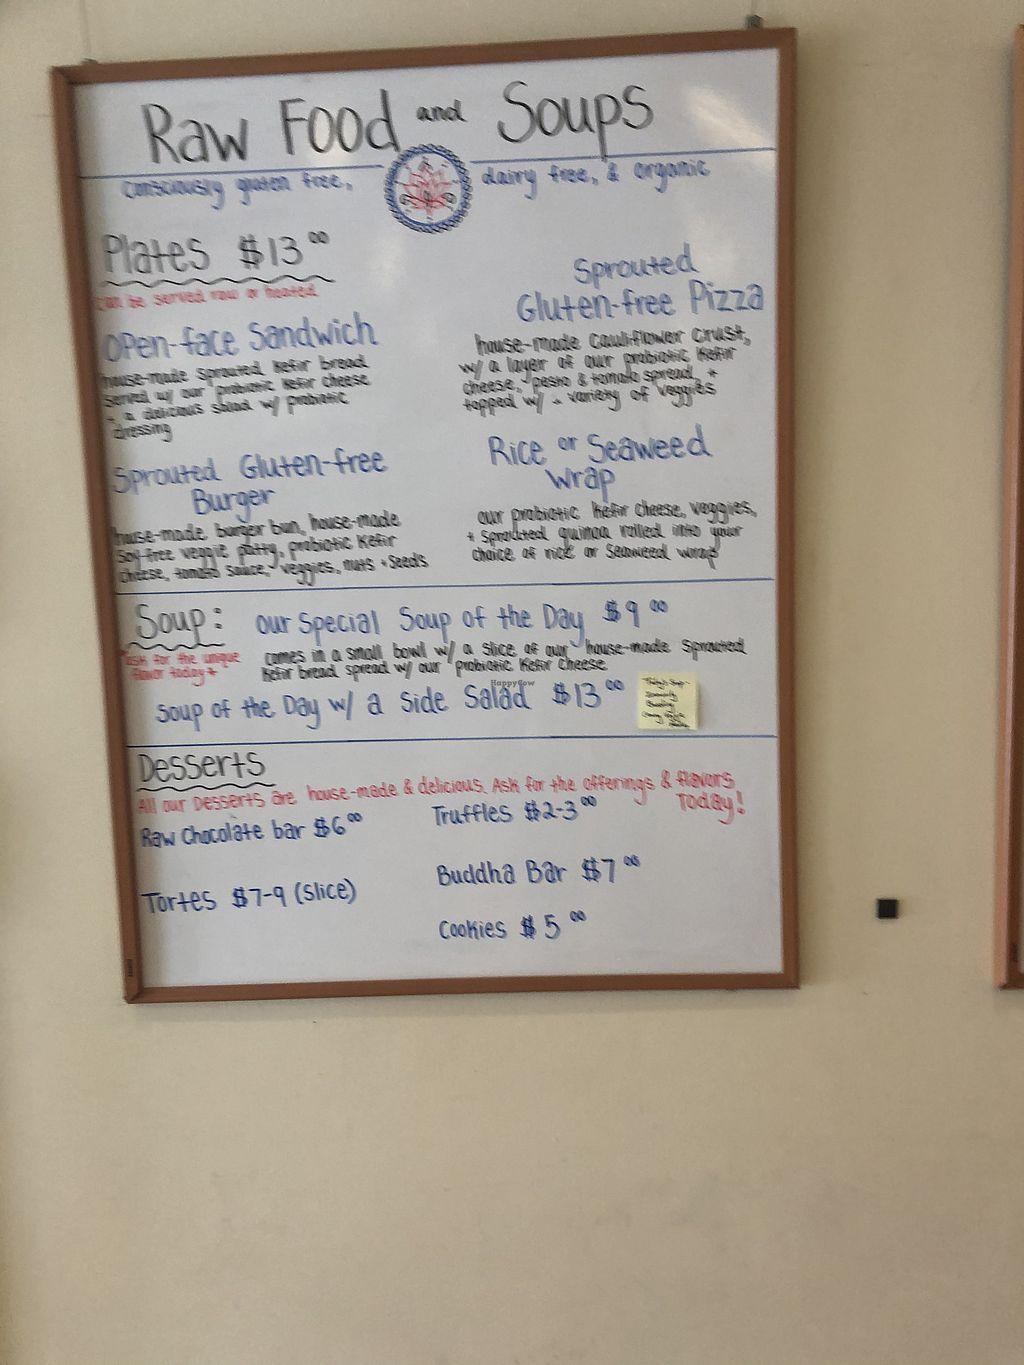 Raw Food and Soups
consciously gluten free, dairy free, & organic
Plates $13.00
can be served raw or heated
Open-face Sandwich
house-made sprouted kefir bread
served w/ our probiotic kefir cheese
+ a delicious salad w/ probiotic
dressing
Sprouted Gluten-free
Burger
house-made burger bun, house-made
soy-free veggie patty, probiotic kefir
cheese, tomato sauce, veggies, nuts + seeds
Sprouted
Gluten-free Pizza
house-made cauliflower crust,
w/ a layer of our probiotic kefir
cheese, pesto & tomato spread, +
topped w/ a variety of veggies
Rice or Seaweed
Wrap
our probiotic kefir cheese, veggies,
+ sprouted quinoa rolled into your
choice of rice or seaweed wrap
Soup: our Special Soup of the Day $9.00
*ask for the unique
flavor today*
comes in a small bowl w/ a slice of our house-made sprouted
kefir bread spread w/ our probiotic kefir cheese
HappyCow
Soup of the Day w/ a side Salad $13.00
Desserts
All our Desserts are house-made & delicious. Ask for the offerings & flavors
Today!
Raw Chocolate bar $6.00
Truffles $2-3.00
Tortes $7-9 (slice)
Buddha Bar $7.00
Cookies $5.00